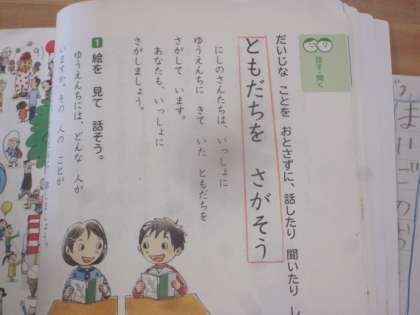 話す・聞く
だいじな ことを おとさずに、話したり 聞いたり し
ともだちを さがそう
にしのさんたちは、いっしょに
ゆうえんちに きて いた ともだちを
さがして います。
あなたも、いっしょに
さがしましょう。
1 絵を 見て 話そう。
ゆうえんちには、どんな 人が
いますか。その 人の ことが